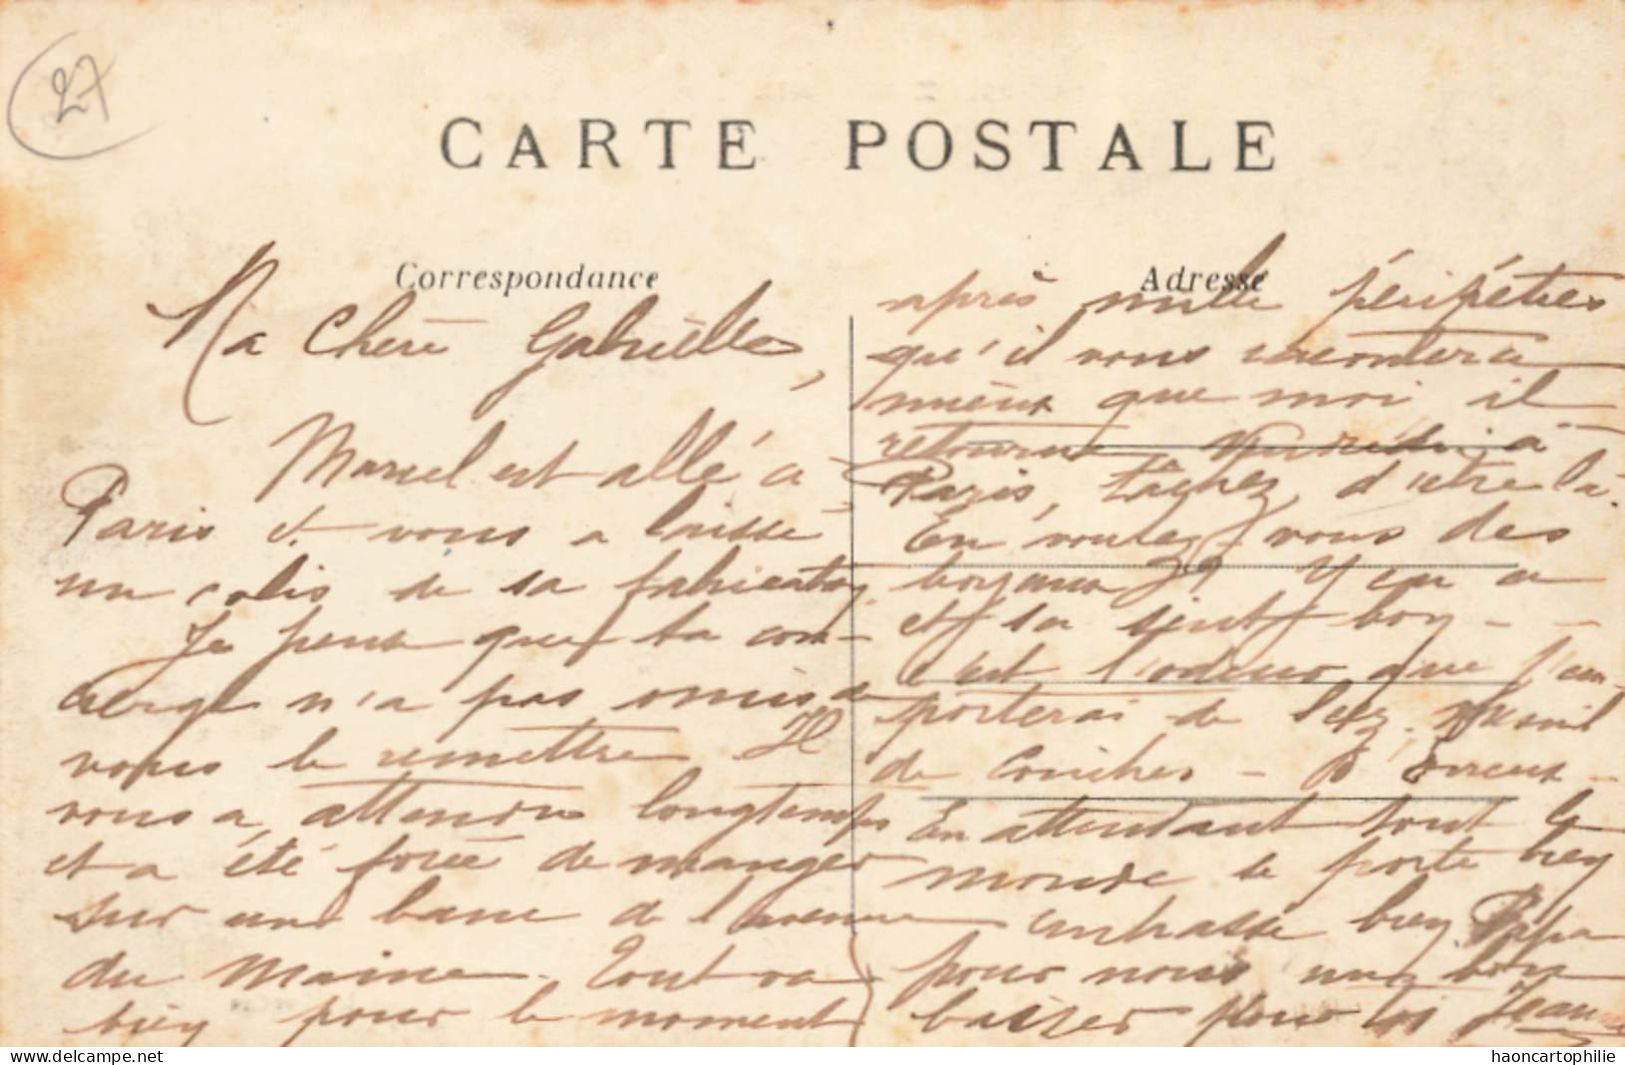 27
CARTE POSTALE
Correspondance
Adresse
Ma Chère Gabrielle,
Marcel est allé à
Paris et vous a laissé
un colis de sa fabrication
Je pense que ta con-
cierge n'a pas omis de
vous le remettre Il
vous a attendu longtemps
et a été forcé de manger
sur un banc de l'avenue
du Maine. Tout va
bien pour le moment
après mille péripéties
qu'il vous racontera
mieux que moi il
retourne Vendredi à
Paris, tâchez d'être là.
En voulez-vous des
boyaux ?? Y en a
et ça sent bon - -
c'est l'odeur que j'em-
porterai de
de Conches - d'Evreux -
En attendant tout le
monde se porte bien
embrasse bien Papa
pour nous un bon
baiser pour toi Jeanne
delcampe.net
haoncartophilie